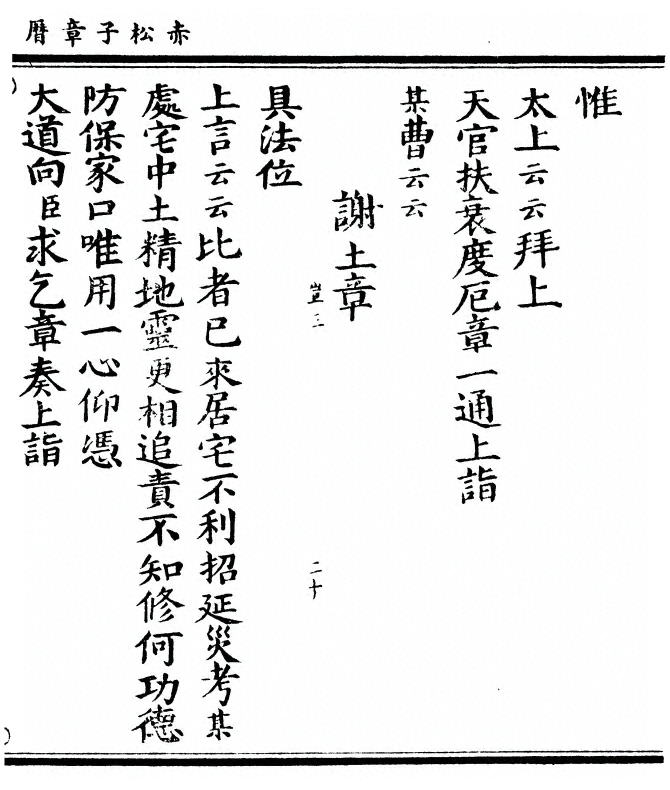 赤松子章曆
惟
太上云云拜上
天官扶衰度厄章一通上詣
某曹云云
謝土章
豈三
二十
具法位
上言云云比者已來居宅不利招延災考某
處宅中土精地靈更相追責不知修何功德
防保家口唯用一心仰憑
大道向臣求乞章奏上詣